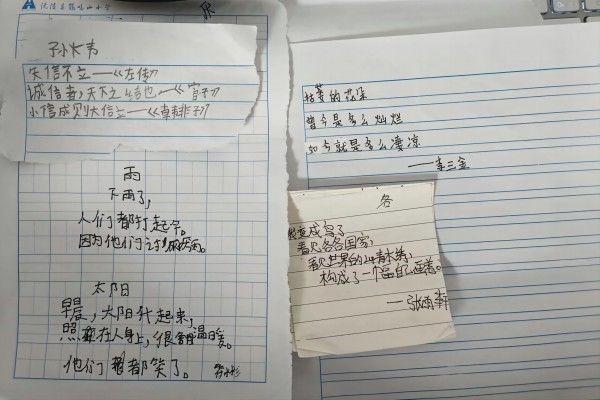 孙大韦
失信不立——《左传》
诚信者,天下之结也——《官子》
小信成则大信立——《韩非子》
雨
下雨了,
人们都打起伞。
因为他们讨厌雨。
太阳
早晨,太阳升起来,
照在人身上,很温暖。
他们都笑了。
枯萎的花朵
曾今是多么灿烂
如今就是多么凄凉
——李三金
各
我变成鸟了
看见各各国家,
看见世界的
构成了一个
——张雨轩